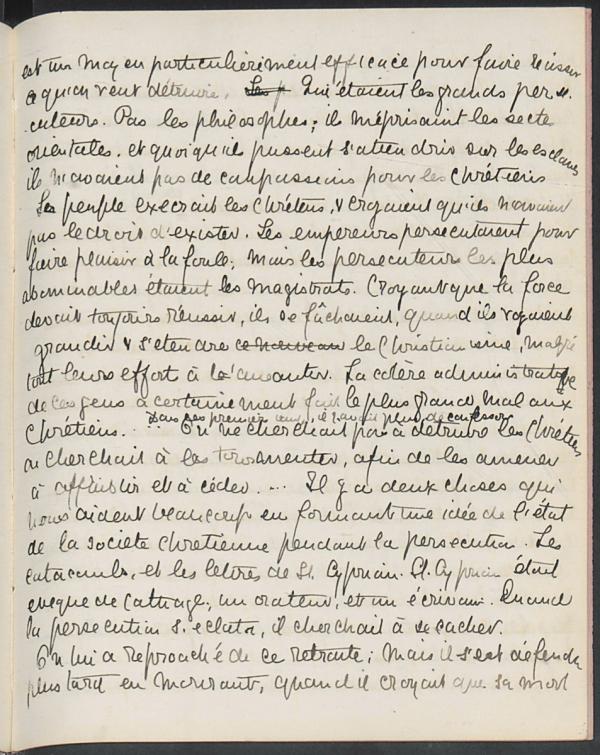 est un moyen particulièrement efficace pour faire réussir
ce qu'on veut détruire. Les p Qui étaient les grands per
cuteurs. Pas les philosophes; ils méprisaient les secte
orientales. et quoiqu'ils pussent s'attendrir sur les esclaves
ils n'avaient pas de compassions pour les Chrétiens
Le peuple execrait les Chrétiens, & croyaient qu'ils n'avaient
pas le droit d'exister. Les empereurs persecutaient pour
faire plaisir à la foule; mais les persecuteurs les plus
abominables étaient les magistrats. Croyant que la force
devait toujours réussir, ils se fâchaient, quand ils voyaient
grandir & s'etendre ce nouveau le Christianisme, malgré
tout leurs effort à l'aneantir. La colère administrative
de ces gens a certainement fait le plus grand mal aux
Chrétiens. Dans les premier temps, il y avait plus de confessors
On ne cherchait pas à détruire les Chrétiens
on cherchait à les tormenter, afin de les amener
à affaiblir et à céder. ... Il y a deux choses qui
nous aident beaucoup en formant une idée de l'état
de la société chretienne pendant la persecution. Les
catacombs, et les lettres de St. Cyprian. St. Cyprian était
eveque de Cathage, un orateur, et un écrivain. Quand
la persecution s'eclata, il cherchait à se cacher.
On lui a reproaché de ce retraite; mais il s'est défendu
plus tard en mourant, quand il croyait que sa mort